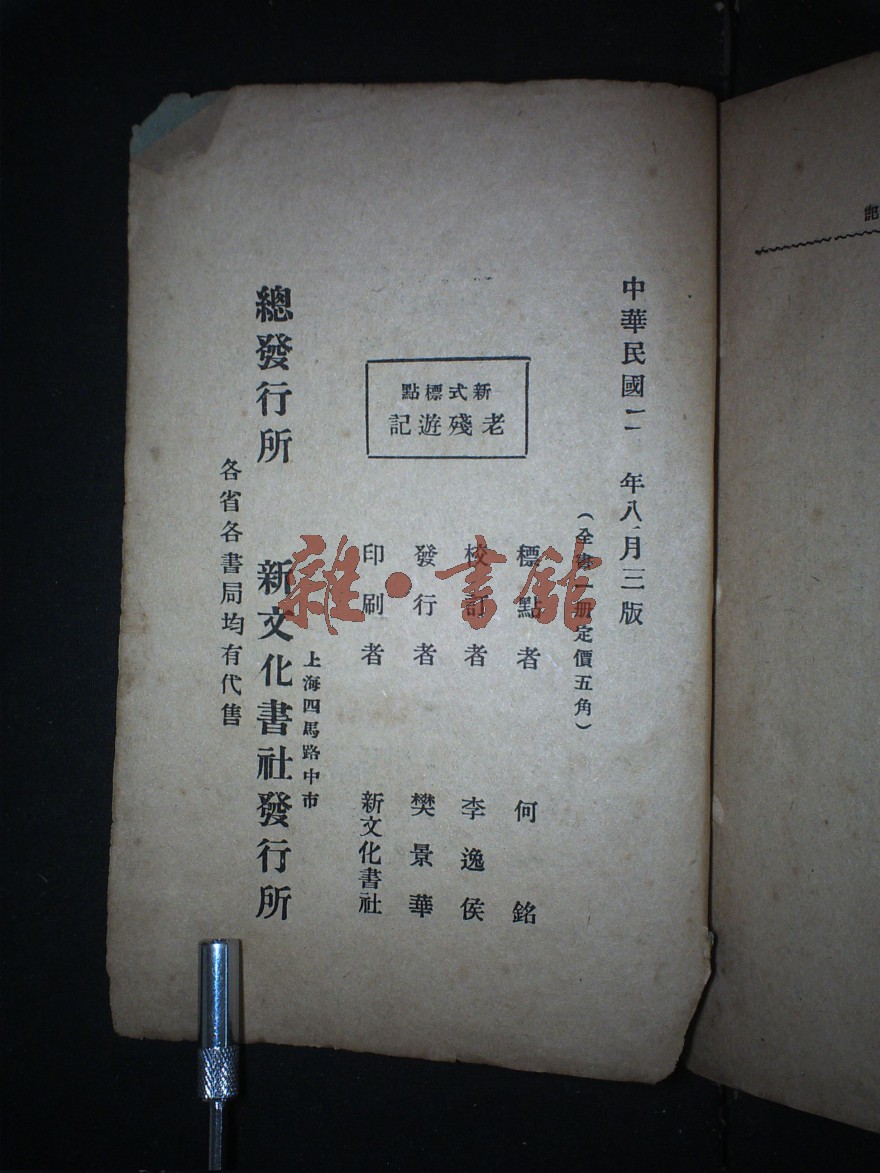 中華民國二 年八月三版
(全書一册定價五角)
新式標點
老殘遊記
標點者 何銘
校訂者 李逸侯
發行者 樊景華
印刷者 新文化書社
上海四馬路中市
總發行所 新文化書社發行所
各省各書局均有代售
雜·書館
記